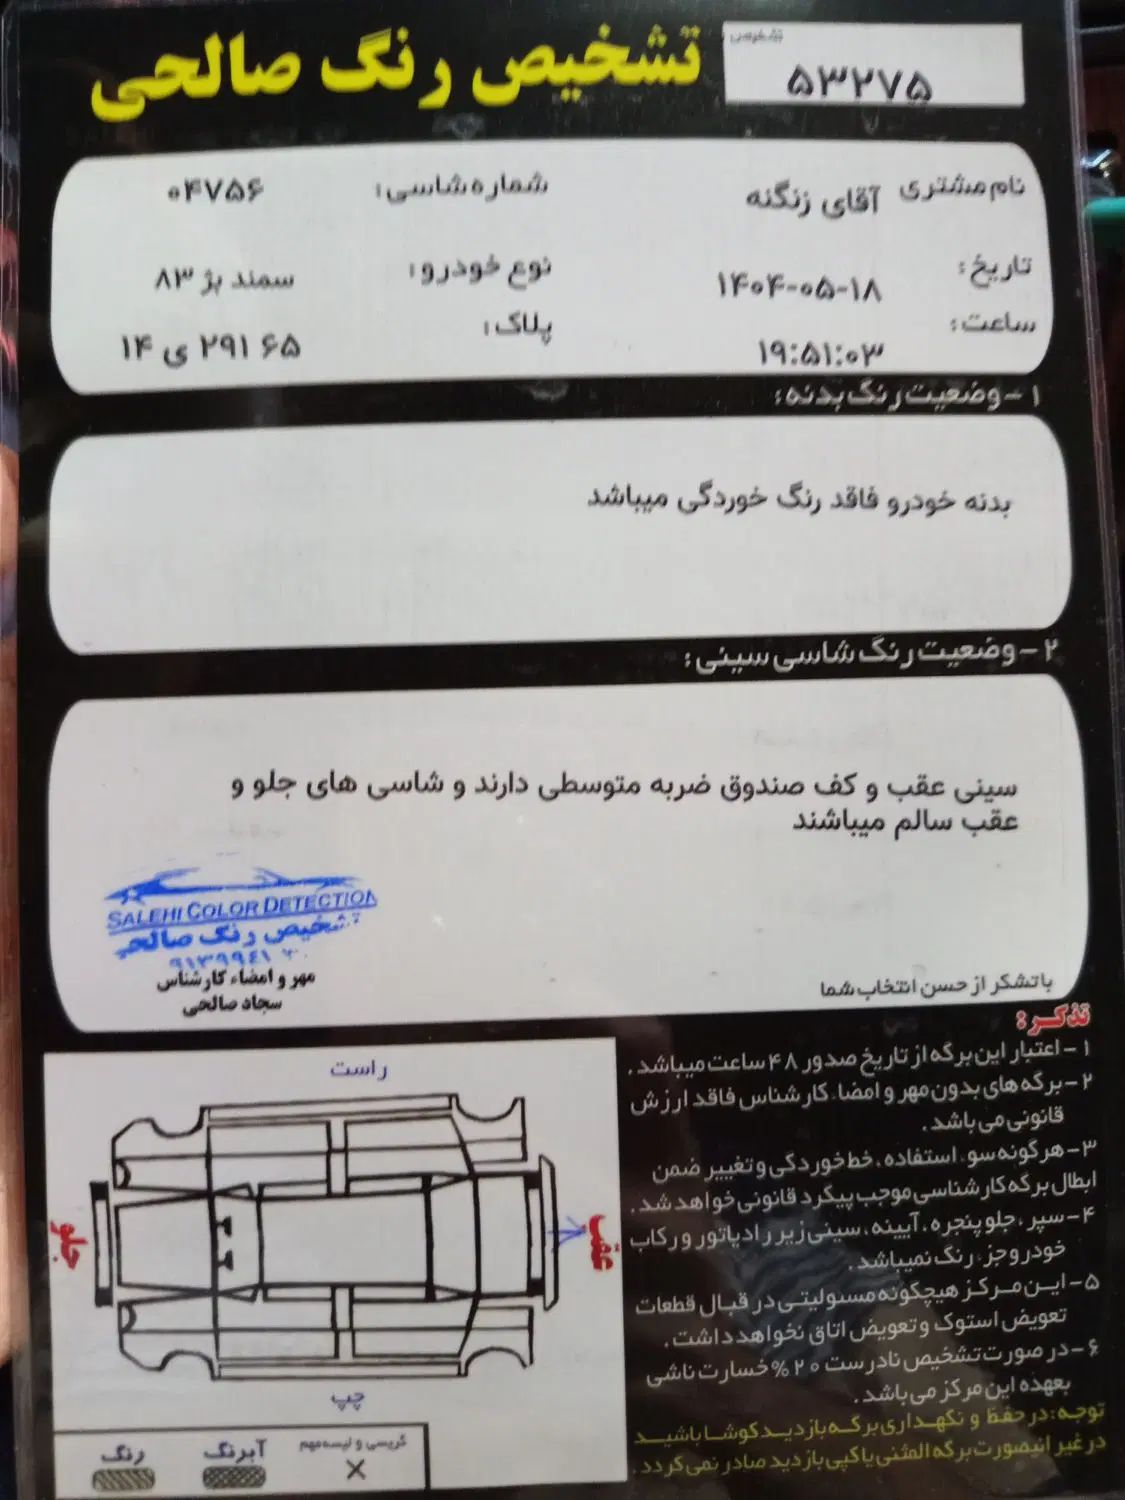 تشخیص رنگ صالحی
۵۳۲۷۵
نام مشتری آقای زنگنه
شماره شاسی: ۰۴۷۵۶
تاریخ: ۱۴۰۴-۰۵-۱۸
نوع خودرو: سمند بژ ۸۳
ساعت: ۱۹:۵۱:۰۳
پلاک: ۶۵ ۲۹۱ ی ۱۴
۱- وضعیت رنگ بدنه:
بدنه خودرو فاقد رنگ خوردگی میباشد
۲- وضعیت رنگ شاسی سینی:
سینی عقب و کف صندوق ضربه متوسطی دارند و شاسی های جلو و
عقب سالم میباشند
SALEHI COLOR DETECTION
تشخیص رنگ صالحی
مهر و امضاء کارشناس
سجاد صالحی
باتشکر از حسن انتخاب شما
تذکر:
۱- اعتبار این برگه از تاریخ صدور ۴۸ ساعت میباشد.
۲- برگه های بدون مهر و امضاء کارشناس فاقد ارزش
قانونی می باشد.
۳- هرگونه سوء استفاده، خط خوردگی و تغییر ضمن
ابطال برگه کارشناسی موجب پیگرد قانونی خواهد شد.
۴- سپر، جلو پنجره، آیینه، سینی زیر رادیاتور و رکاب
خودرو جزء رنگ نمیباشد.
۵- این مرکز هیچگونه مسئولیتی در قبال قطعات
تعویض استوک و تعویض اتاق نخواهد داشت.
۶- در صورت تشخیص نادرست ۲۰% خسارت ناشی
بعهده این مرکز می باشد.
توجه: در حفظ و نگهداری برگه بازدید کوشا باشید
در غیر اینصورت برگه المثنی یا کپی بازدید صادر نمی گردد.
راست
جلو
عقب
چپ
گریسی و لیسه مهم
آبرنگ
رنگ